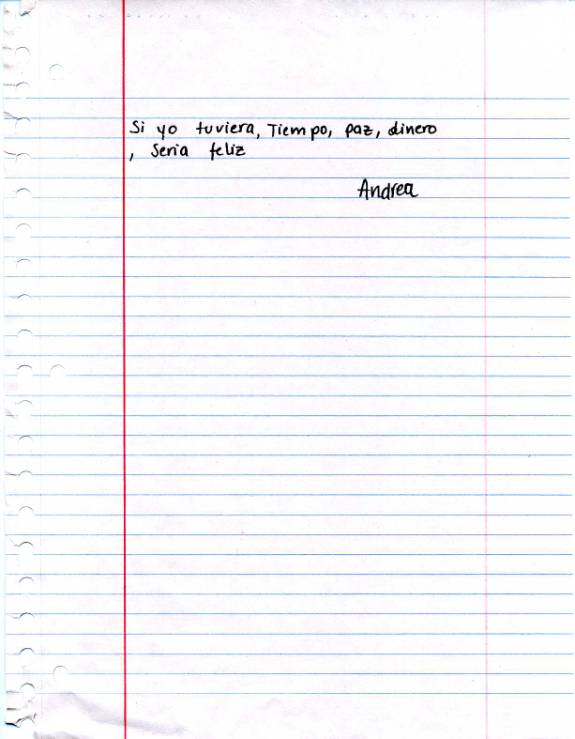 Si yo tuviera, Tiempo, paz, dinero
, Seria feliz
Andrea